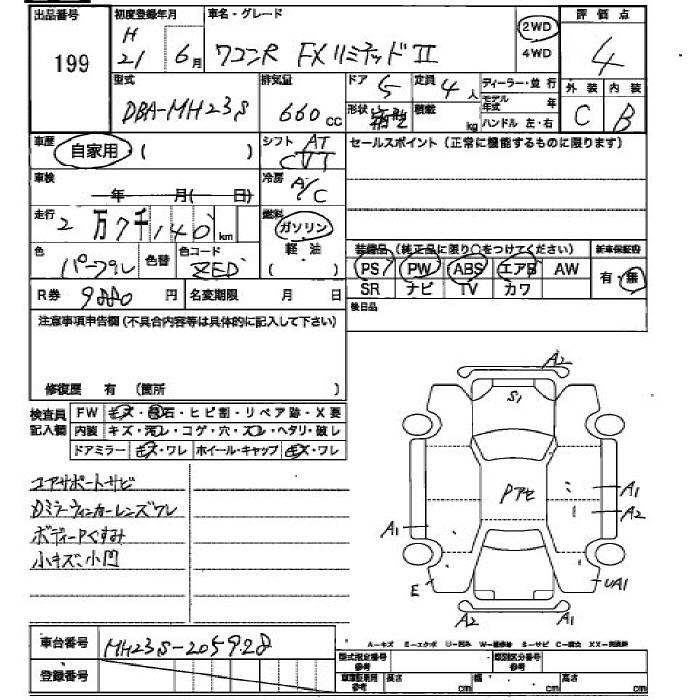 出品番号 初度登録年月 車名・グレード 2WD 評価点
199 H 21 6月 ワゴンR FXリミテッドⅡ 4WD 4
型式 排気量 ドア 5 定員 4人 ディーラー・並行 外装 内装
DBA-MH23S 660cc 形状 箱型 積載 kg モデル年式 年 C B
ハンドル 左・右
車歴 自家用 ( ) シフト AT CVT セールスポイント(正常に機能するものに限ります)
車検 年 月( 日) 冷房 A/C
走行 2万7千140km 燃料 ガソリン
軽油
( )
色 パープル 色替 色コード ZED 装備品(純正品に限り○をつけてください) 新車保証書
PS PW ABS エアB AW 有・無
SR ナビ TV カワ
R券 9880円 名変期限 月 日 後日品
注意事項申告欄(不具合内容等は具体的に記入して下さい)
修復歴 有 (箇所 )
検査員記入欄 FW キズ・飛石・ヒビ割・リペア跡・X要
内装 キズ・汚レ・コゲ・穴・スレ・ヘタリ・破レ
ドアミラー キズ・ワレ ホイール・キャップ キズ・ワレ
コアサポートサビ
Dミラーウィンカーレンズワレ
ボディーPくすみ
小キズ、小凹
A2
S1
Pアセ
A1
A2
A1
E
UA1
A2
A1
車台番号 MH23S-205928
登録番号
A-キズ E-エクボ U-凹み S-サビ C-腐食
型式指定番号 参考 類別区分番号 参考
長さ cm 幅 cm 高さ cm